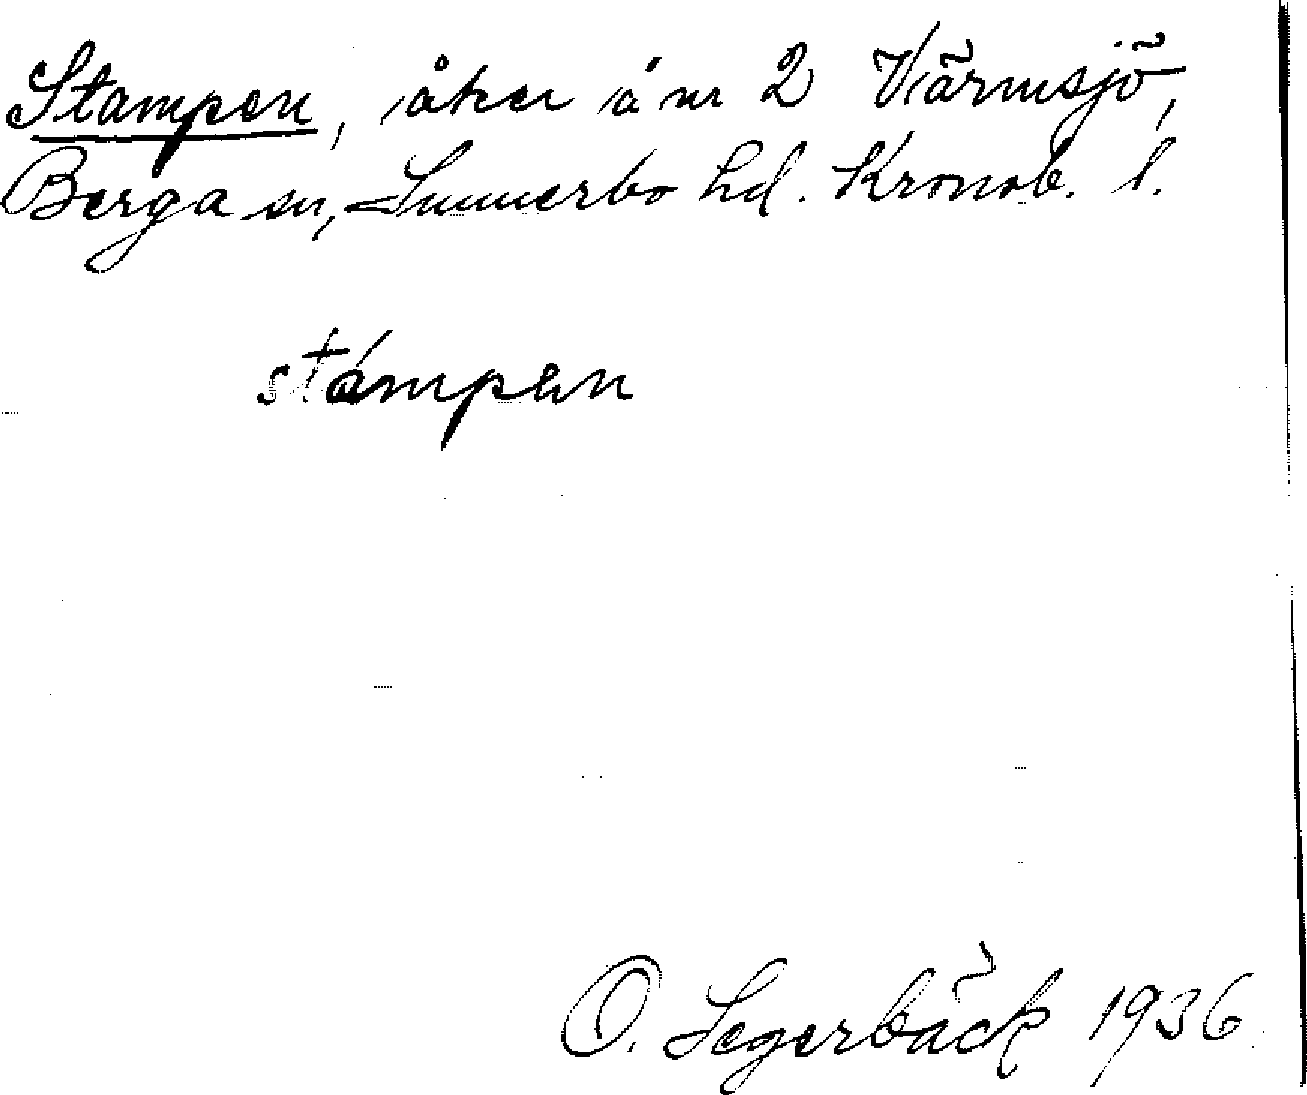 Stampen, åker å nr 2 Värmsjö,
Berga sn, Sunnerbo hd. Kronob. l.
stámpen
O. Segerbäck 1936